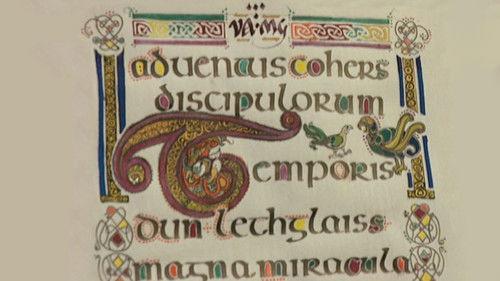 VA·MG
aduentus cohers
discipulorum
Temporis
dun lethglaiss
magna miracula